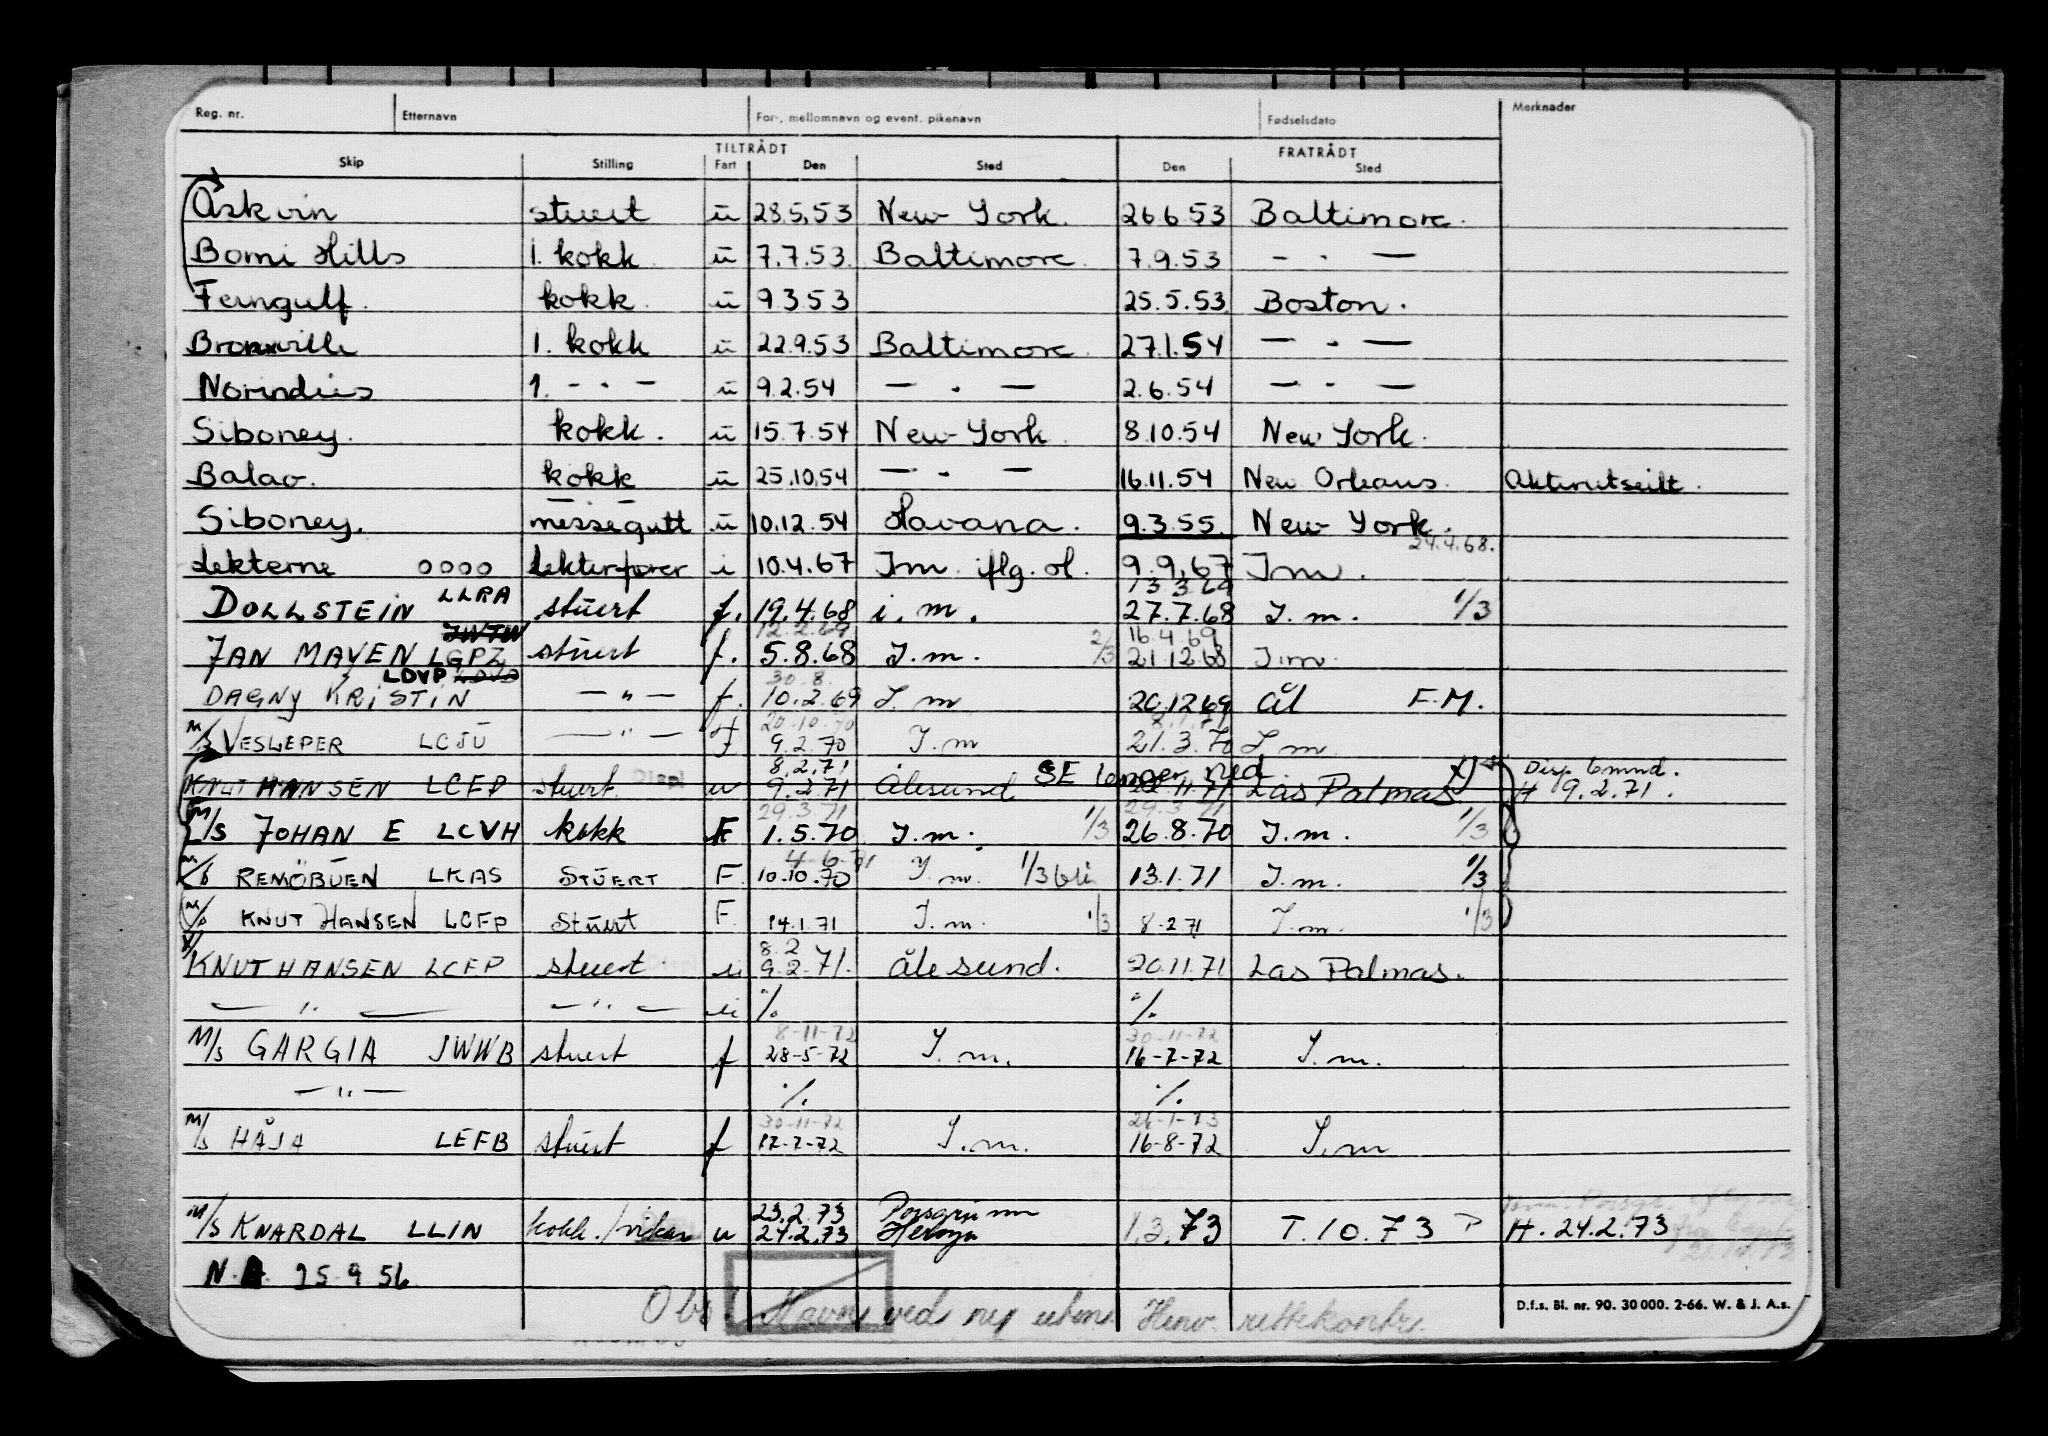 Reg. nr. Etternavn For-, mellomnavn og event. pikenavn Fødselsdato Merknader
TILTRÅDT FRATRÅDT
Skip Stilling Fart Den Sted Den Sted
Askvin stuert u 28.5.53 New York. 26.6.53 Baltimore.
Bomi Hills 1. kokk u 7.7.53. Baltimore 7.9.53 — " —
Ferngulf. kokk. u 9.3.53 25.5.53 Boston.
Bronxville 1. kokk u 22.9.53 Baltimore 27.1.54 — " —
Norindies 1. — " — u 9.2.54 — " — 2.6.54 — " —
Siboney. kokk. u 15.7.54 New York. 8.10.54 New York.
Balao. kokk u 25.10.54 — " — 16.11.54 New Orleans. Akterutseilt.
Siboney. messegutt u 10.12.54 Havana. 9.3.55. New York.
24.4.68.
Lekterne 0000 lekterfører i 10.4.67 I.m. iflg. ol. 9.9.67 I.m.
13.3.69
DOLLSTEIN LLRA stuert f. 19.4.68 i.m. 27.7.68 I.m. 1/3
JWTW 12.2.69 16.4.69
JAN MAYEN LGPZ stuert f. 5.8.68 I.m. 2/3 21.12.68 I.m.
LDVP 30.8.
DAGNY KRISTIN — " — f. 10.2.69 I.m 20.12.69 Ål F.M.
20.10.70 8.1.71
M/S VESLEPER LCJU — " — f 9.2.70 I.m 21.3.70 I.m.
8.2.71 SE lenger ned x) Disp 6mnd.
KNUT HANSEN LCFP stuert u 9.2.71 Ålesund 20.11.71 Las Palmas H 9.2.71.
29.3.71 29.3.71
M/S JOHAN E LCVH kokk F 1.5.70 I.m. 1/3 26.8.70 I.m. 1/3
4-6-71
M/S REMÖBUEN LKAS STUERT F. 10.10.70 I.m. 1/3 13.1.71 I.m. 1/3
M/S KNUT HANSEN LCFP Stuert F. 14.1.71 I.m. 1/3 8.2.71 I.m. 1/3
x/ 8.2
KNUT HANSEN LCFP stuert u 9.2.71. Ålesund. 20.11.71 Las Palmas.
— " — — " — u %. %.
8-11-72 30-11-72
M/S GARGIA JWWB stuert f 28-5-72 I.m. 16-7-72 I.m.
— " — %. %.
30-11-72 26-1-73
M/S HÅJA LEFB stuert f 17-7-72 I.m. 16-8-72 I.m
23.2.73 Porsgrunn
M/S KNARDAL LLIN kokk/vikar u 24.2.73 Herøya 1.3.73 T.10.73 P H. 24.2.73
N.A. 25.9.56
Obs! Havne ved ny utm. Henv. rettekontr.
D.f.s. Bl. nr. 90. 30 000. 2-66. W. & J. A.s.